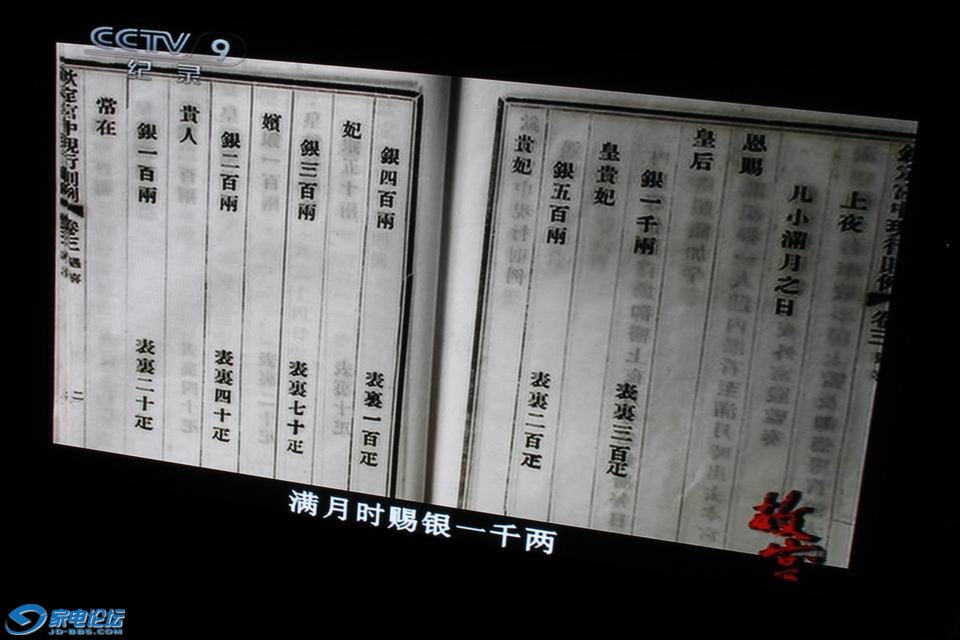 CCTV 9
纪录
上夜
儿小滿月之日
恩賜
皇后
銀一千兩
表裏三百疋
皇貴妃
銀五百兩
表裏二百疋
貴妃
銀四百兩
表裏一百疋
妃
銀三百兩
表裏七十疋
嬪
銀二百兩
表裏四十疋
貴人
銀一百兩
表裏二十疋
常在
欽定宮中現行則例
卷三
二
满月时赐银一千两
故宫
家电论坛
JD-BBS.COM